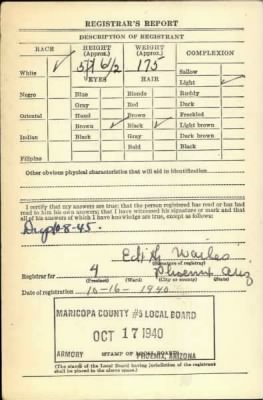 REGISTRAR'S REPORT
DESCRIPTION OF REGISTRANT
RACE HEIGHT (Approx.) WEIGHT (Approx.) COMPLEXION
White ✓ 5 175 Sallow
EYES HAIR Light ✓
Negro Blue Blonde Ruddy
Gray Red Dark
Oriental Hazel Brown Freckled
Brown ✓ Black ✓ Light brown
Indian Black Gray Dark brown
Bald Black
Filipino
Other obvious physical characteristics that will aid in identification
I certify that my answers are true; that the person registered has read or has had
read to him his own answers; that I have witnessed his signature or mark and that
all of his answers of which I have knowledge are true, except as follows:
8-45.
(Signature of registrar)
Registrar for 4 Phoenix Ariz
(Precinct) (Ward) (City or county) (State)
Date of registration 10-16-1940
MARICOPA COUNTY #5 LOCAL BOARD
OCT 17 1940
ARMORY PHOENIX, ARIZONA
STAMP OF LOCAL BOARD
(The stamp of the Local Board having jurisdiction of the registrant
shall be placed in the above space.)